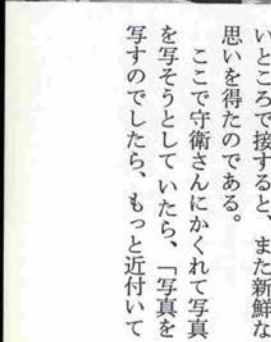 いところで接すると、また新鮮な
思いを得たのである。
ここで守衛さんにかくれて写真
を写そうとしていたら、「写真を
写すのでしたら、もっと近付いて